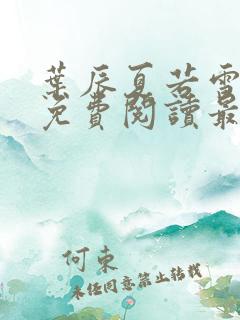 葉辰夏若雪
免費閱讀最
何東
未經同意禁止轉載